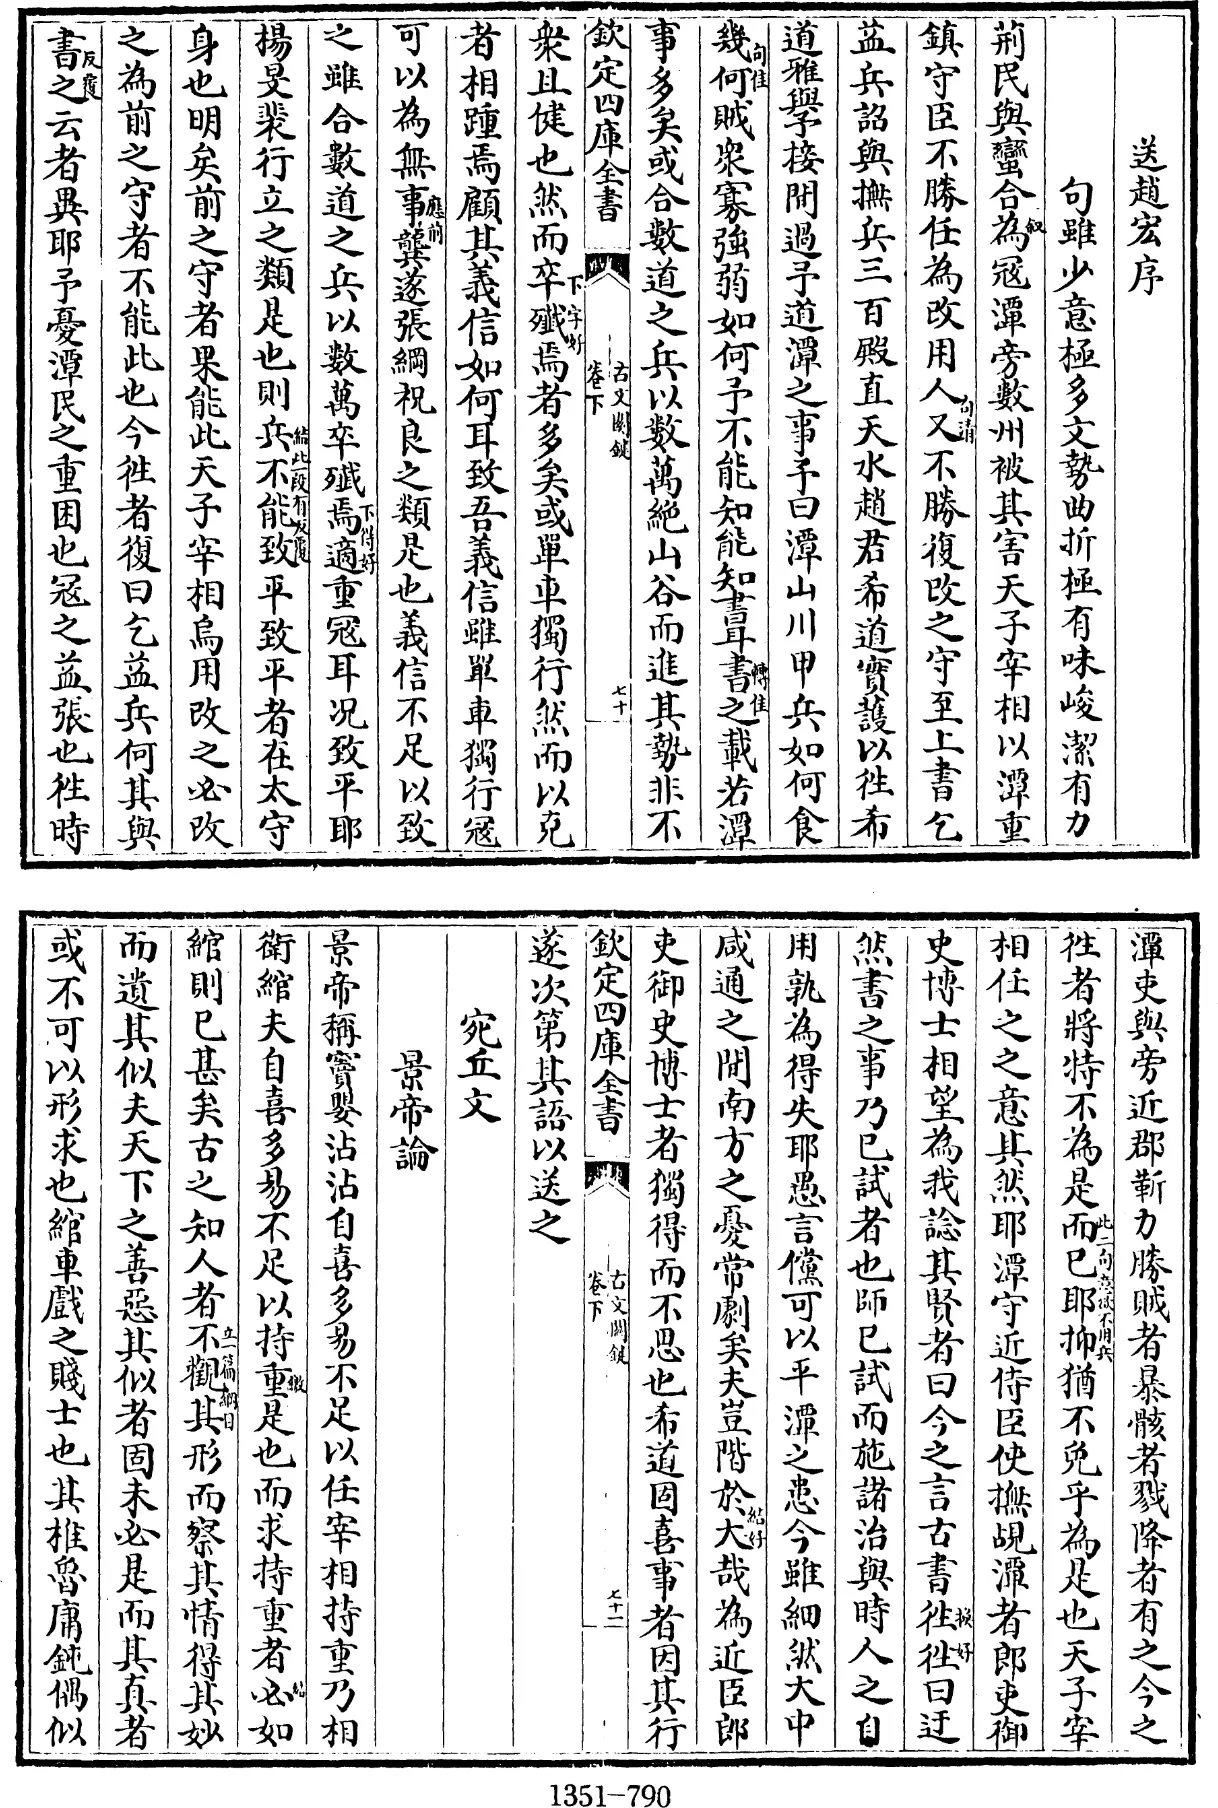 送趙宏序
句雖少意極多文勢曲折極有味峻潔有力
荊民與蠻合為冦潭旁數州被其害天子宰相以潭重
叙
鎮守臣不勝任為改用人又不勝復改之守至上書乞
句清
益兵詔與撫兵三百殿直天水趙君希道實護以徃希
道雅與予接間過予道潭之事予曰潭山川甲兵如何食
幾何賊衆寡強弱如何予不能知能知書耳書之載若潭
句佳
轉佳
事多矣或合數道之兵以數萬絶山谷而進其勢非不
欽定四庫全書
古文關鍵
卷下
七十
衆且健也然而卒殲焉者多矣或單車獨行然而以克
下字好
者相踵焉顧其義信如何耳致吾義信雖單車獨行冦
可以為無事龔遂張綱祝良之類是也義信不足以致
應前
之雖合數道之兵以數萬卒殲焉適重冦耳况致平耶
下得好
揚旻裴行立之類是也則兵不能致平致平者在太守
結此段有反覆
身也明矣前之守者果能此天子宰相烏用改之必改
之為前之守者不能此也今徃者復曰乞益兵何其與
書之云者異耶予憂潭民之重困也冦之益張也徃時
反覆
潭吏與旁近郡靳力勝賊者暴骸者戮降者有之今之
徃者將特不為是而已耶抑猶不免乎為是也天子宰
此二句意欲不用兵
相任之之意其然耶潭守近侍臣使撫覘潭者郎吏御
史博士相望為我諗其賢者曰今之言古書徃徃曰迂
換好
然書之事乃已試者也師已試而施諸治與時人之自
用孰為得失耶愚言儻可以平潭之患今雖細然大中
咸通之間南方之憂常劇矣夫豈階於大哉為近臣郎
結好
吏御史博士者獨得而不思也希道固喜事者因其行
欽定四庫全書
古文關鍵
卷下
七十一
遂次第其語以送之
宛丘文
景帝論
景帝稱竇嬰沾沾自喜多易不足以任宰相持重乃相
衛綰夫自喜多易不足以持重是也而求持重者必如
繳
綰則已甚矣古之知人者不觀其形而察其情得其妙
立一篇綱目
而遺其似夫天下之善惡其似者固未必是而其真者
或不可以形求也綰車戲之賤士也其椎魯庸鈍偶似
1351-790